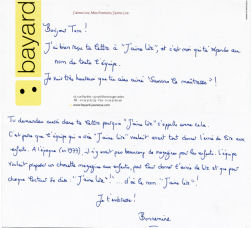 J'aime Lire, Mes Premiers J'aime Lire
bayard
Bonjour Tara !
J'ai bien reçu ta lettre à "J'aime lire", et c'est moi qui te réponds au
nom de toute l'équipe.
Je suis très heureuse que tu aies aimé
Tu demandes aussi dans ta lettre pourquoi "J'aime lire" s'appelle comme cela.
C'est parce que l'équipe qui a créé "J'aime lire" voulait avant tout donner l'envie de lire aux
enfants. A l'époque (en 1977), il n'y avait pas beaucoup de magazines pour les enfants. L'équipe
voulait proposer un chouette magazine aux enfants, pour leur donner l'envie de lire et que pour
chaque lecteur se dise : "J'aime lire !" ... d'où le nom "J'aime lire" !
Je t'embrasse !